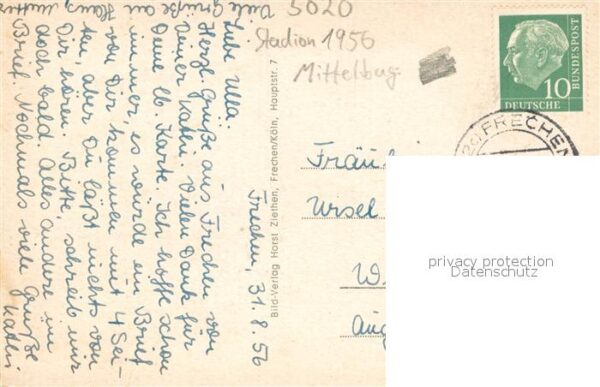 5020
Stadion 1956
Mittelbug.
10
DEUTSCHE
BUNDESPOST
FRECHEN
Frechen, 31.8.56
Liebe Ulla!
Herzl. Grüße aus Frechen von
Deiner Kathi. Vielen Dank für
Deine lb. Karte. Ich hoffe schon
immer, es würde ein Brief
von Dir kommen mit 4 Sei-
ten, aber Du läßt nichts von
Dir hören. Bitte, schreib mir
doch bald. Alles andere im
Brief. Nochmals viele Grüße
Kathi.
Viele Grüße an
Hans
Bild-Verlag Horst Ziethen, Frechen/Köln, Hauptstr. 7
Fräul
Ursel
W
Aug
privacy protection
Datenschutz